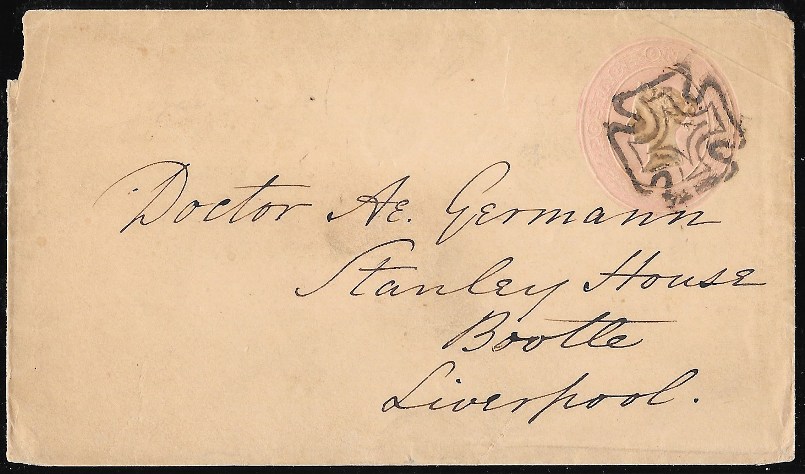 Doctor Ae. Germann
Stanley House
Bootle
Liverpool.